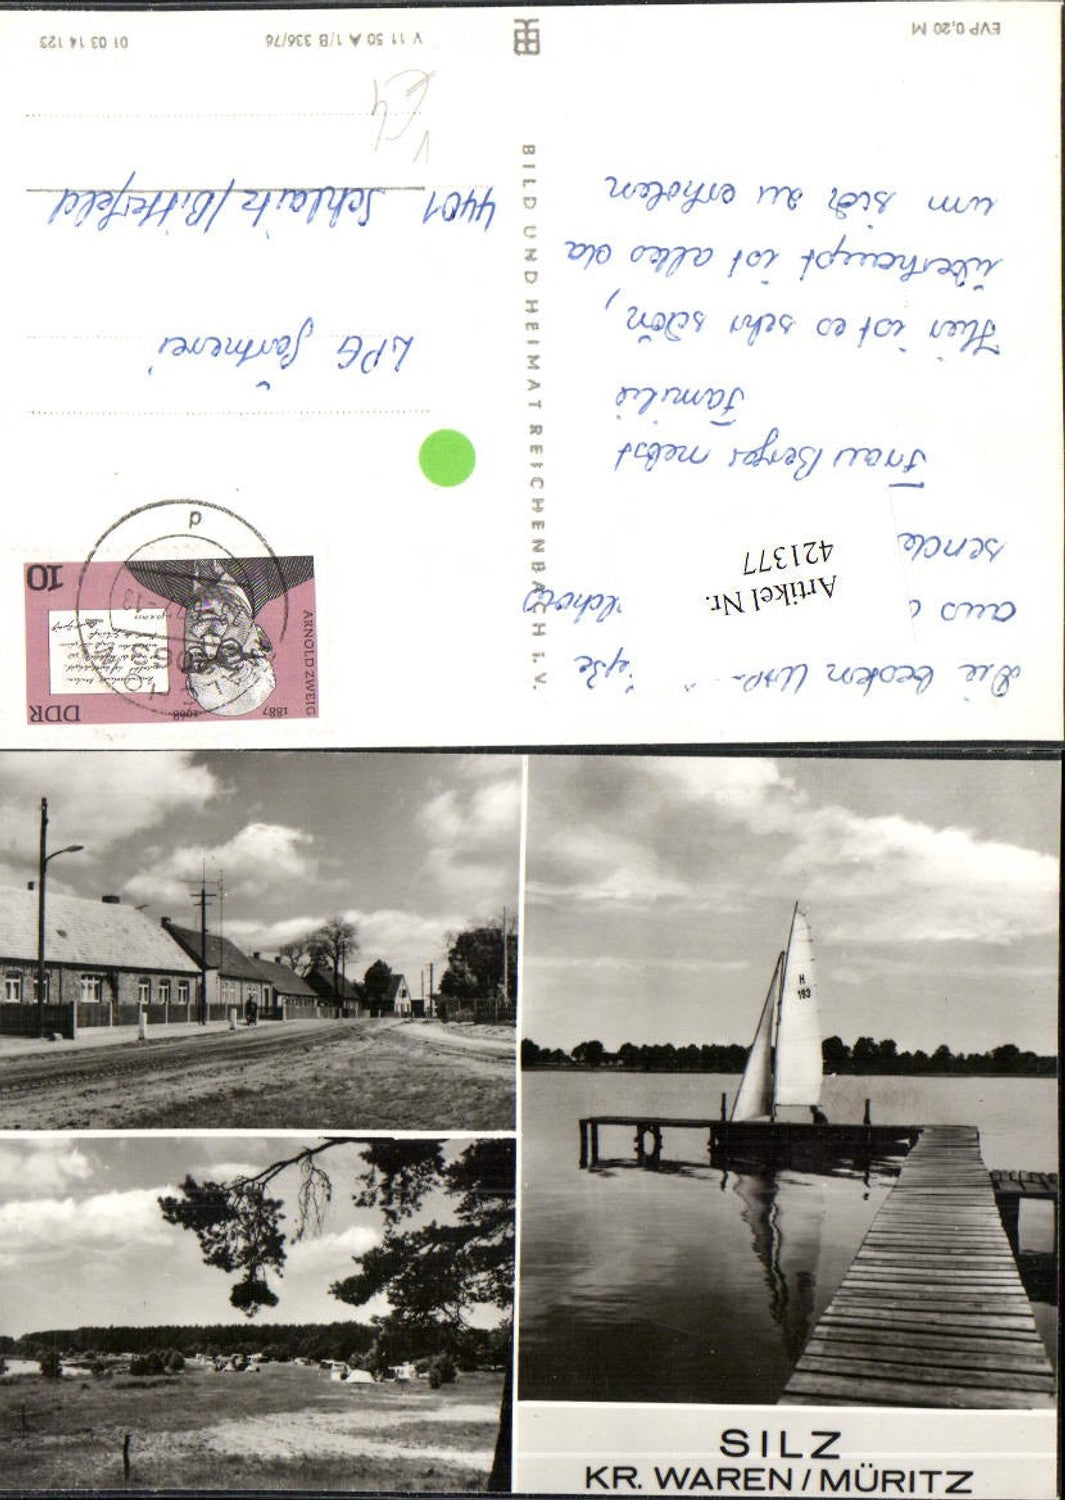 EVP 0,20 M
Die besten
aus
sende
Frau Berger nebst
Familie
Hier ist es sehr schön,
überhaupt ist alles da
um sich zu erholen
Artikel Nr.
421377
BILD UND HEIMAT REICHENBACH I. V.
V 11 50 A 1/B 336/76
01 03 14 123
DDR
1887
1968
ARNOLD ZWEIG
10
d
LPG Gärtnerei
4401 Schlaitz/Bitterfeld
H
193
SILZ
KR. WAREN/MÜRITZ